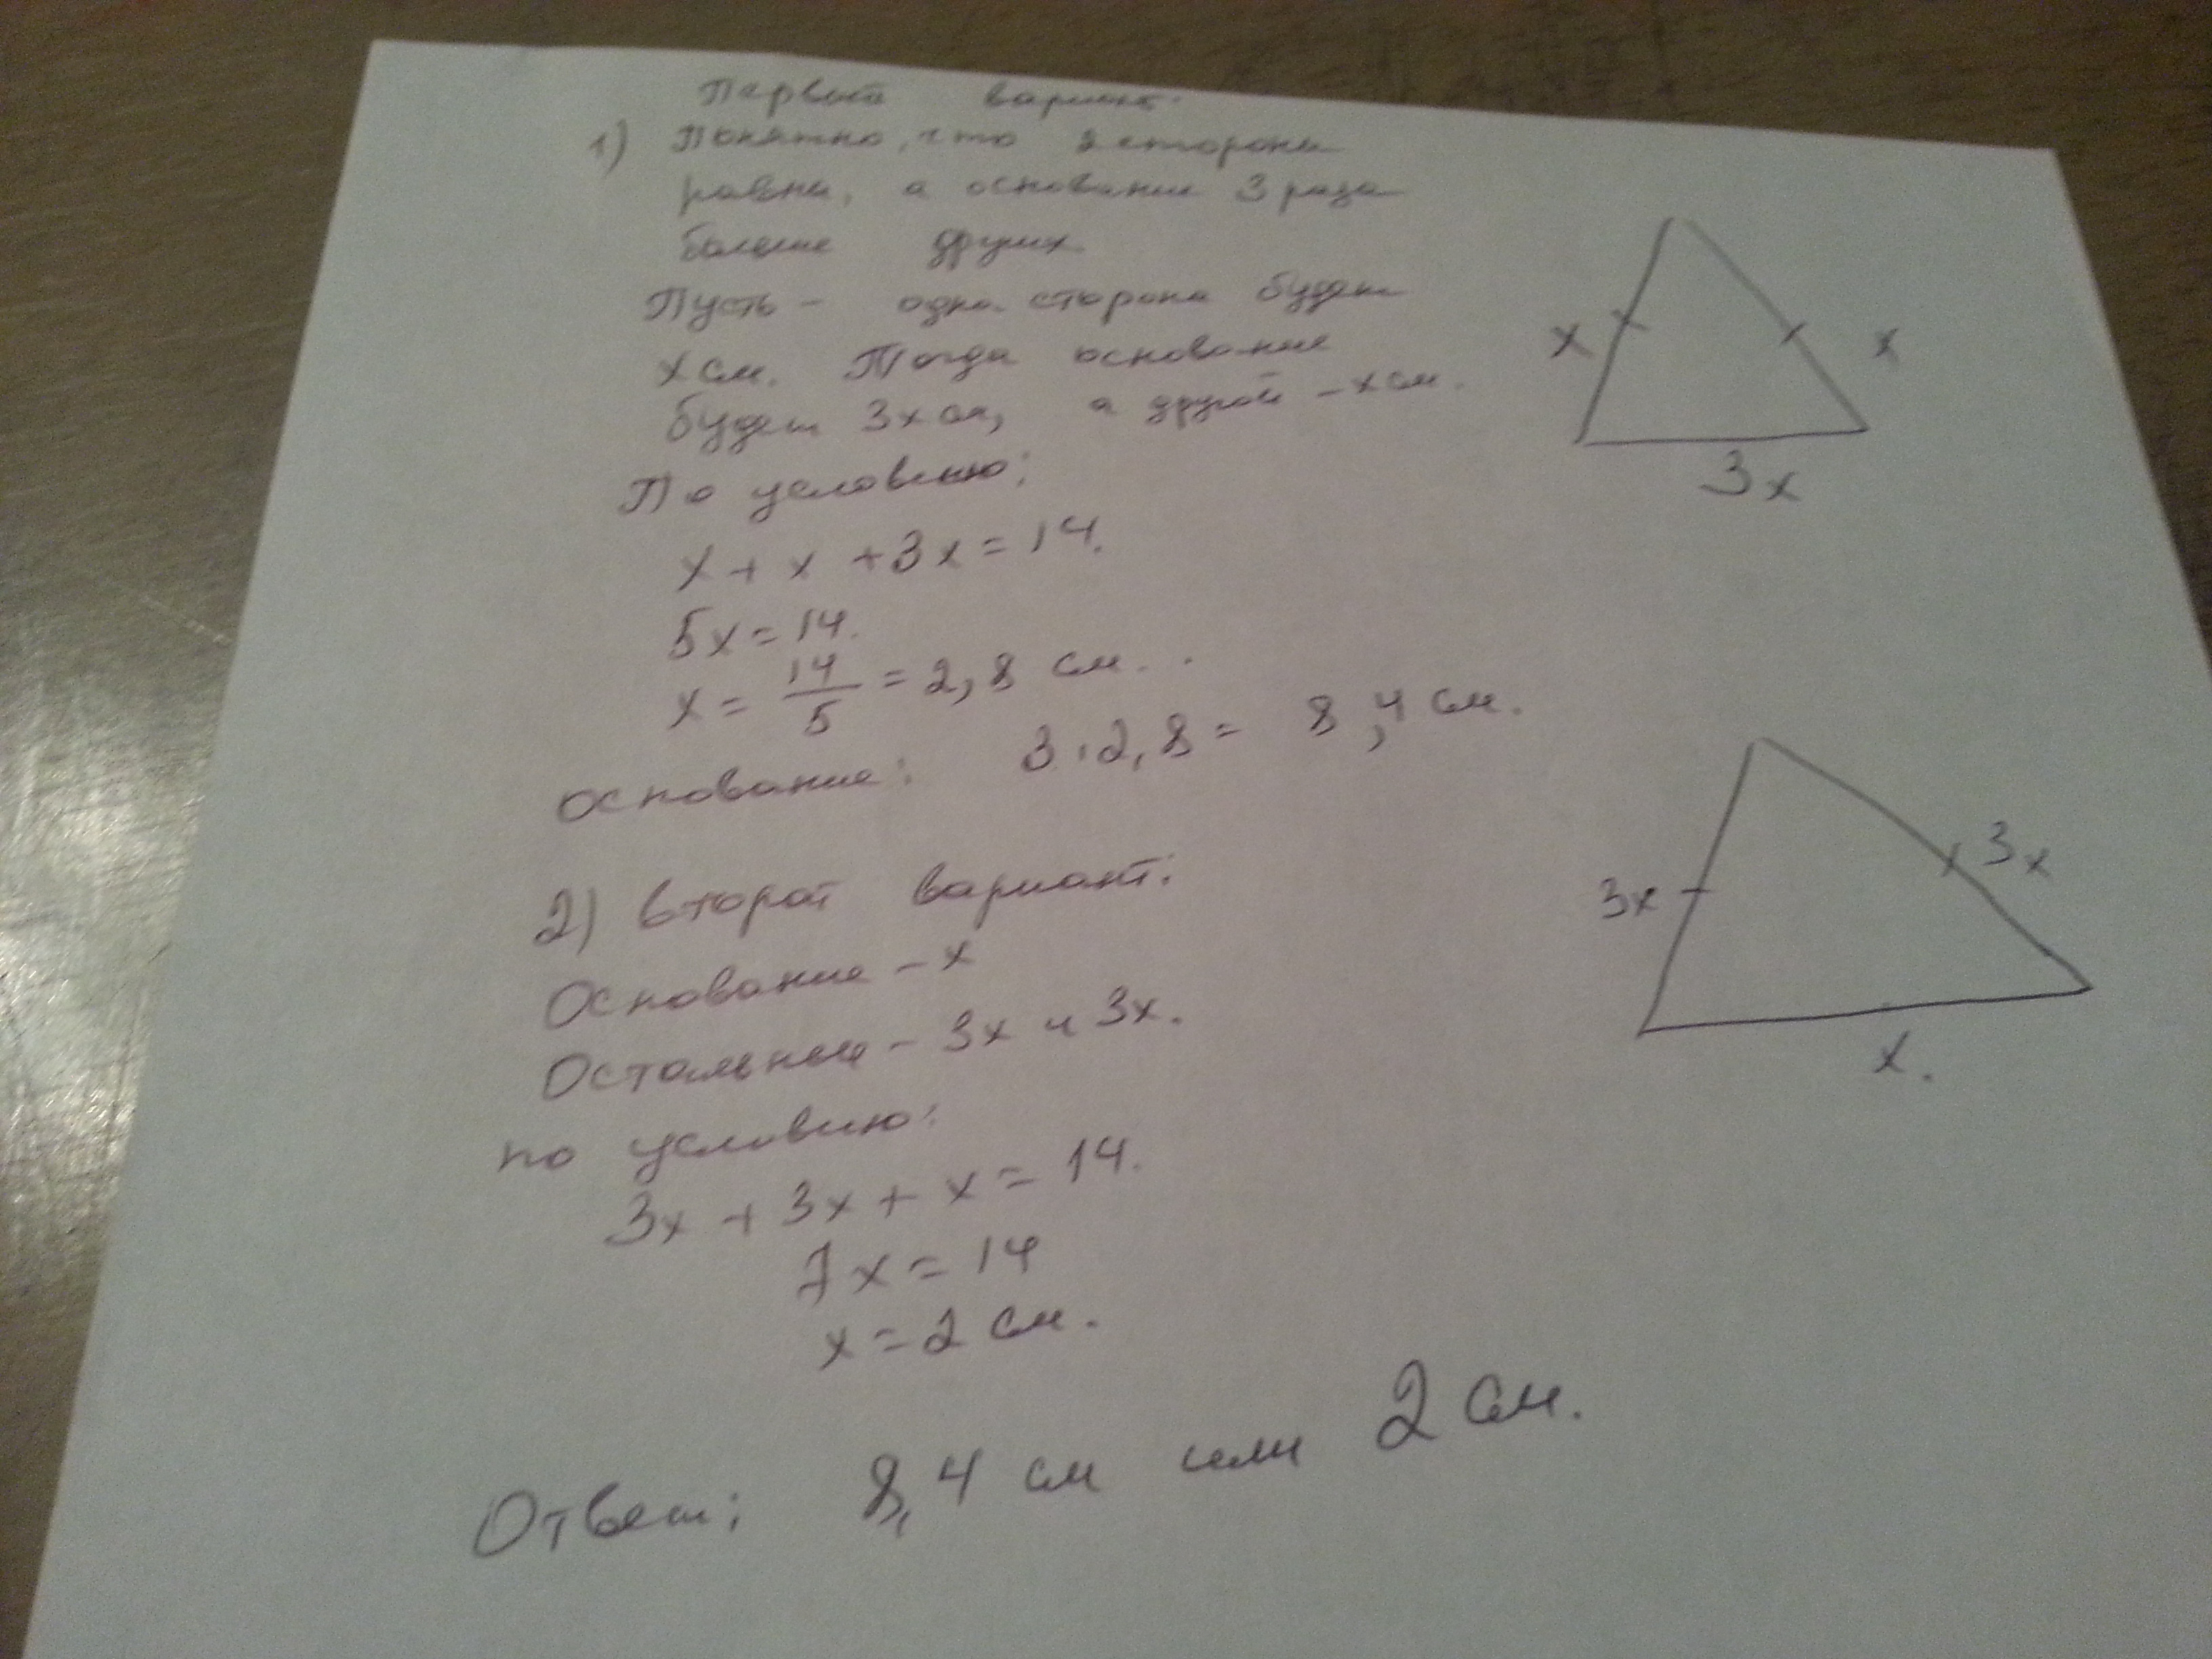 Первый вариант.
1) Понятно, что 2 стороны
равны, а основание 3 раза
больше других
Пусть - одна сторона будет
x см. Тогда основание
будет 3x см, а другой - x см.
По условию:
x + x + 3x = 14.
5x = 14.
x = 14/5 = 2,8 см.
основание: 3 · 2,8 = 8,4 см.
x
x
3x
2) второй вариант:
Основание - x
Остальные - 3x и 3x.
по условию:
3x + 3x + x = 14.
7x = 14
x = 2 см.
3x
3x
x.
Ответ: 8,4 см или 2 см.